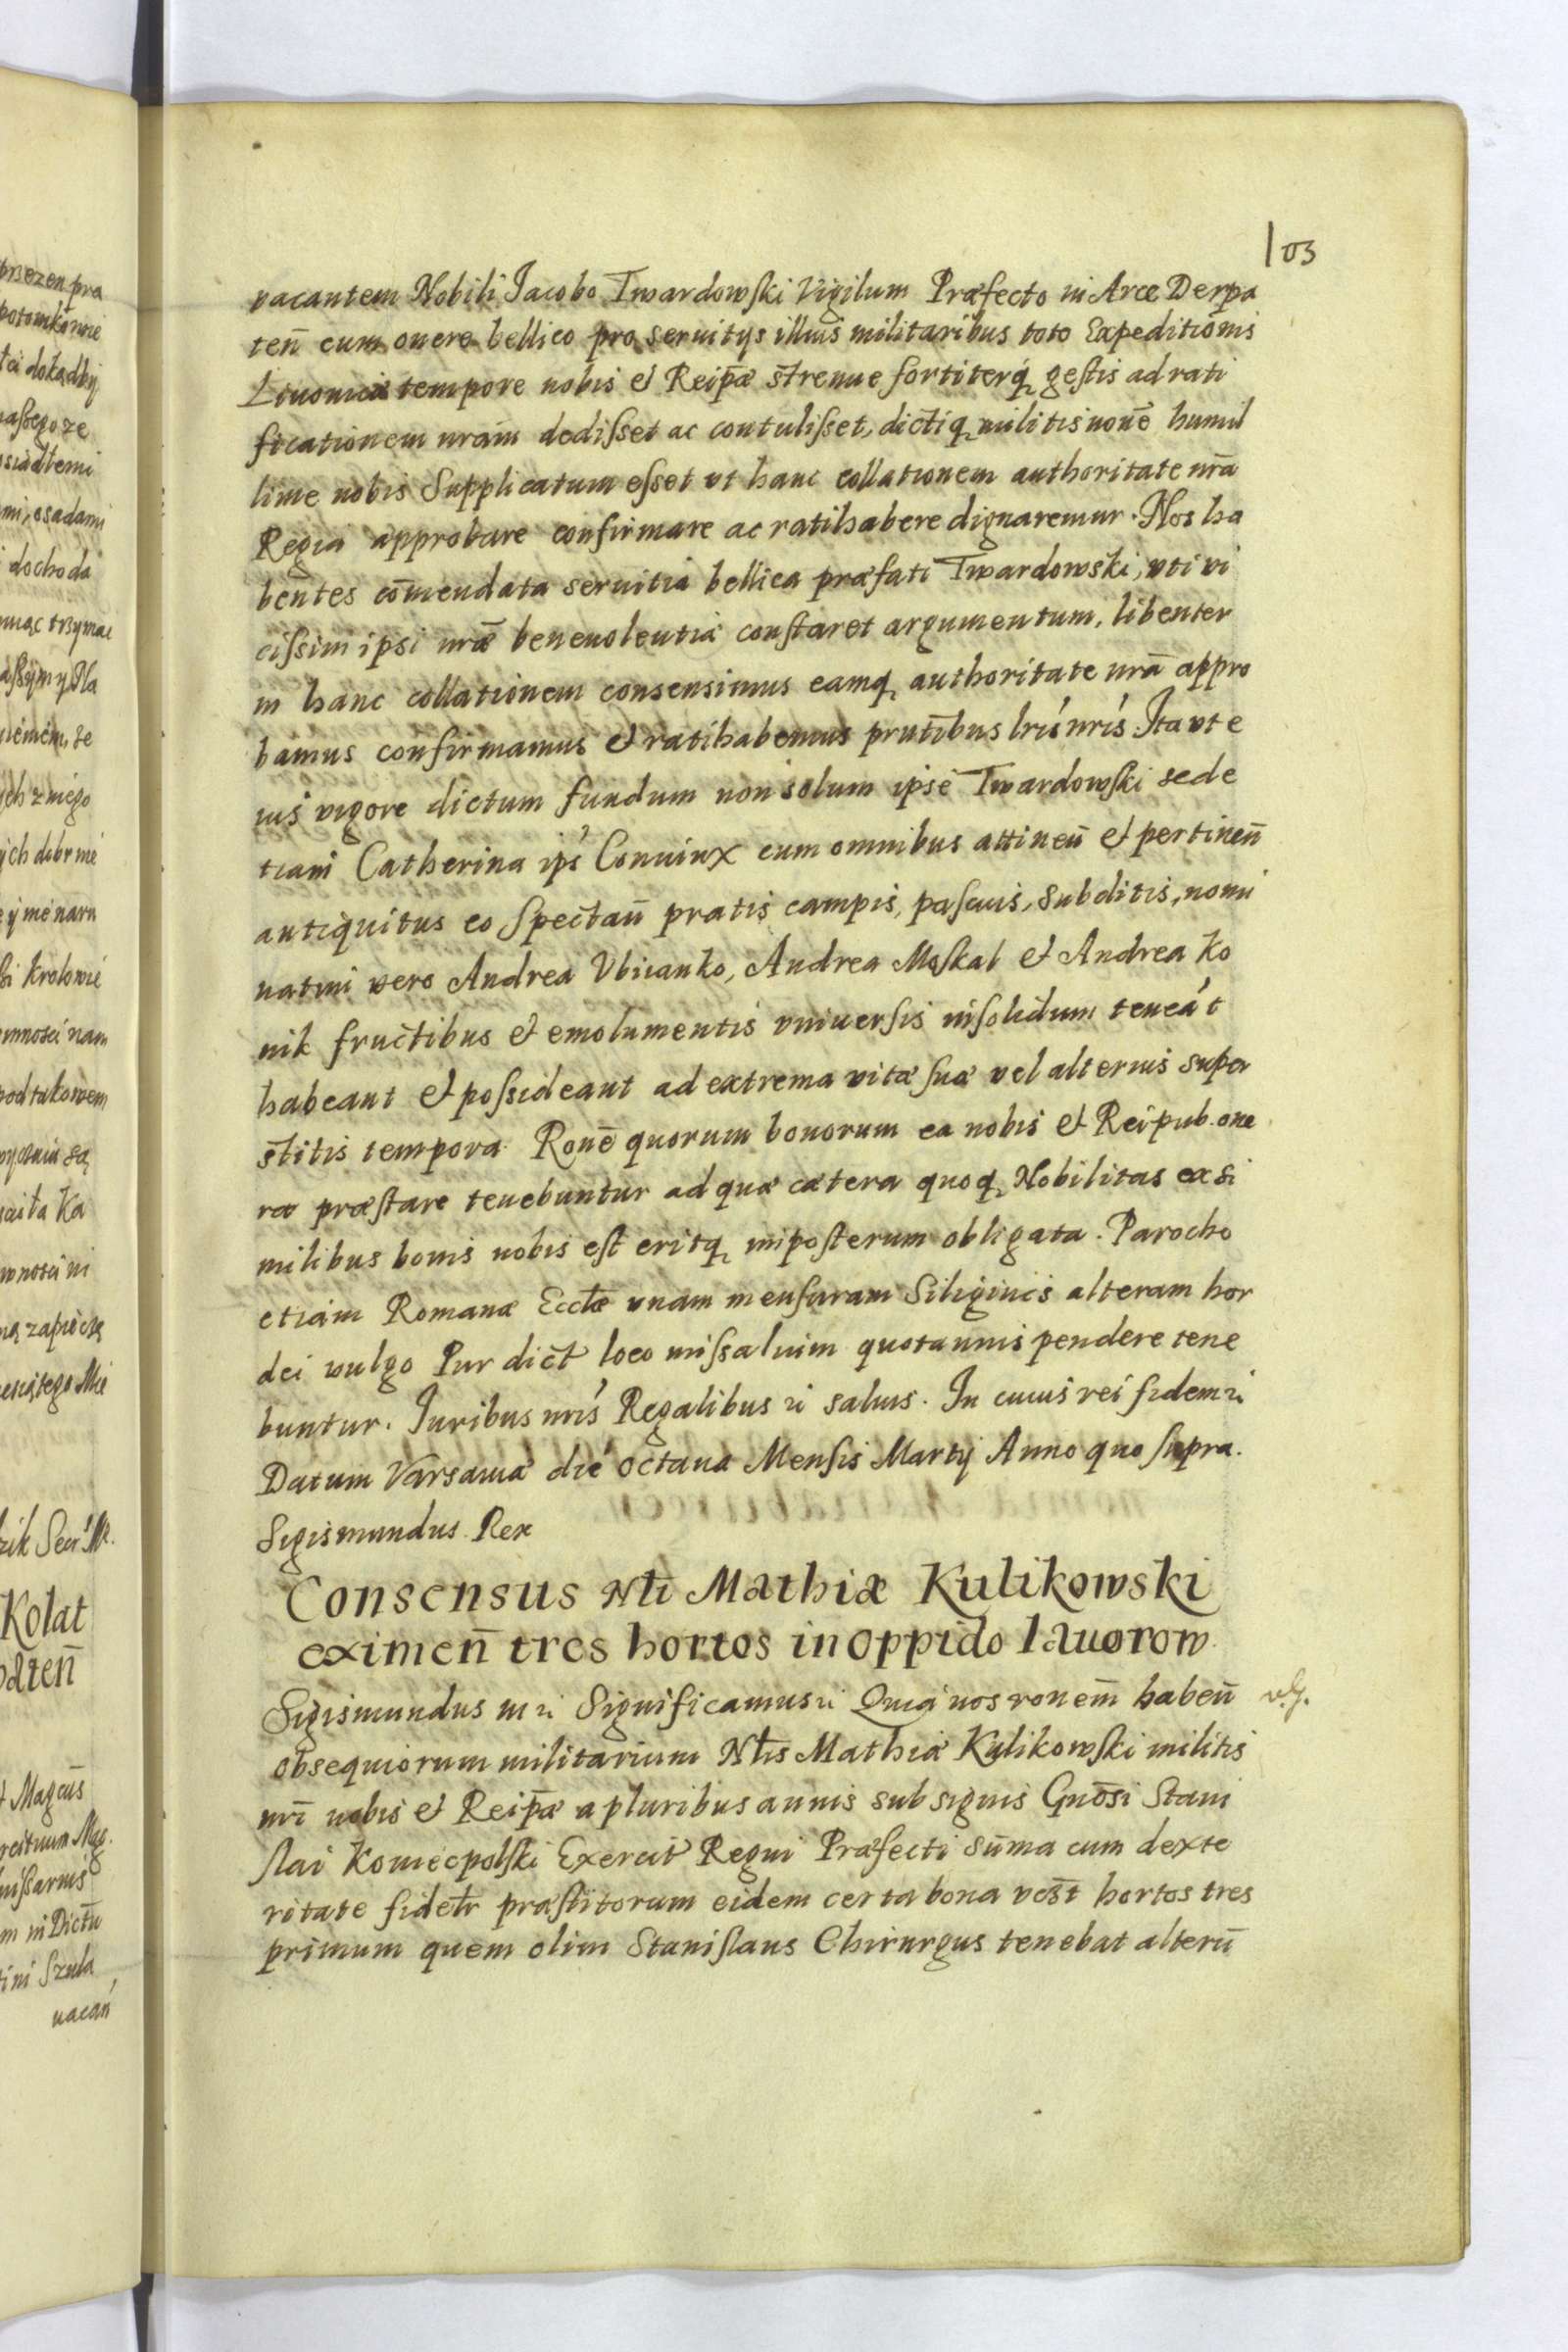 103
vacantem Nobili Jacobo Twardowski Vigilum Præfecto in Arce Derpa
ten̄ cum onere bellico pro seruitys illius militaribus toto Expeditionis
Liuonicæ tempore nobis et Reip̄æ strenue fortiterq́ gestis ad rati
ficationem nram̄ dedisset ac contulisset, dictiq militis noē humil
lime nobis Supplicatum esset vt hanc collationem authoritate nrā
Regia approbare confirmare ac ratihabere dignaremur. Nos ha
bentes com̄endata seruitia bellica præfati Twardowski, vti vi
cissim ipsi nrǣ beneuolentiæ constaret argumentum, libenter
in hanc collationem consensimus eamq authoritate nrā appro
bamus confirmamus et ratihabemus prntībus lrís nrís. Ita vt e
ius vigore dictum fundum non solum ipse Twardowski sed e
tiam Catherina ips̕ Coniunx cum omnibus attinen̄ et pertinen̄
antiquitus eo spectan̄ pratis campis, pascuis, subditis, nomi
natim vero Andrea Vbicanko, Andrea Moskal et Andrea Ko
nik fructibus et emolumentis vniuersis in solidum teneát
habeant et possideant ad extrema vitæ suæ vel alterius super
stitis tempora. Ronē quorum bonorum ea nobis et Reipub. one
ra præstare tenebuntur ad quæ cætera quoq Nobilitas ex si
milibus bonis nobis est eritq imposterum obligata. Parocho
etiam Romanæ Eccłæ vnam mensuram Siliginis alteram hor
dei vulgo Pur dict loco missalium quotannis pendere tene
buntur. Iuribus nrís Regalibus ꝛ saluis. In cuius rei fidem ꝛ
Datum Varsauiæ die octaua Mensis Martij Anno quo supra.
Sigismundus Rex
Consensus Nłi Mathiæ Kulikowski
eximen̄ tres hortos in oppido Iauorow
Sigismundus III ꝛ Significamus ꝛ Quia nos ronem̄ haben̄
obsequiorum militarium Nłis Mathiæ Kulikowski militis
nrī nobis et Reip̄æ a pluribus annis sub signis Gnōsi Stani
slai Koniecpolski Exercit Regni Præfecti sum̄a cum dexte
ritate fidełr præstitorum eidem certa bona vest̄ hortos tres
primum quem olim Stanislaus Chirurgus tenebat alterū